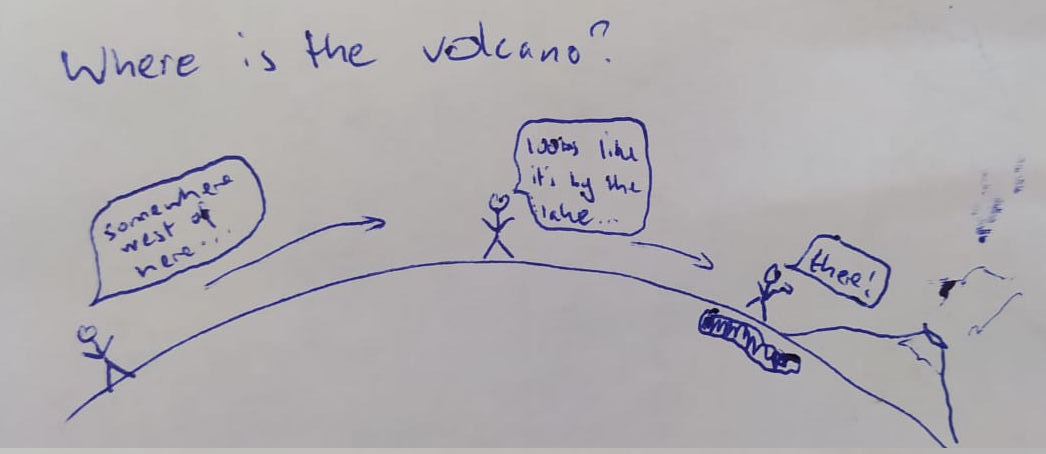 Where is the volcano?
somewhere
west of
here...
looks like
it's by the
lake...
there!